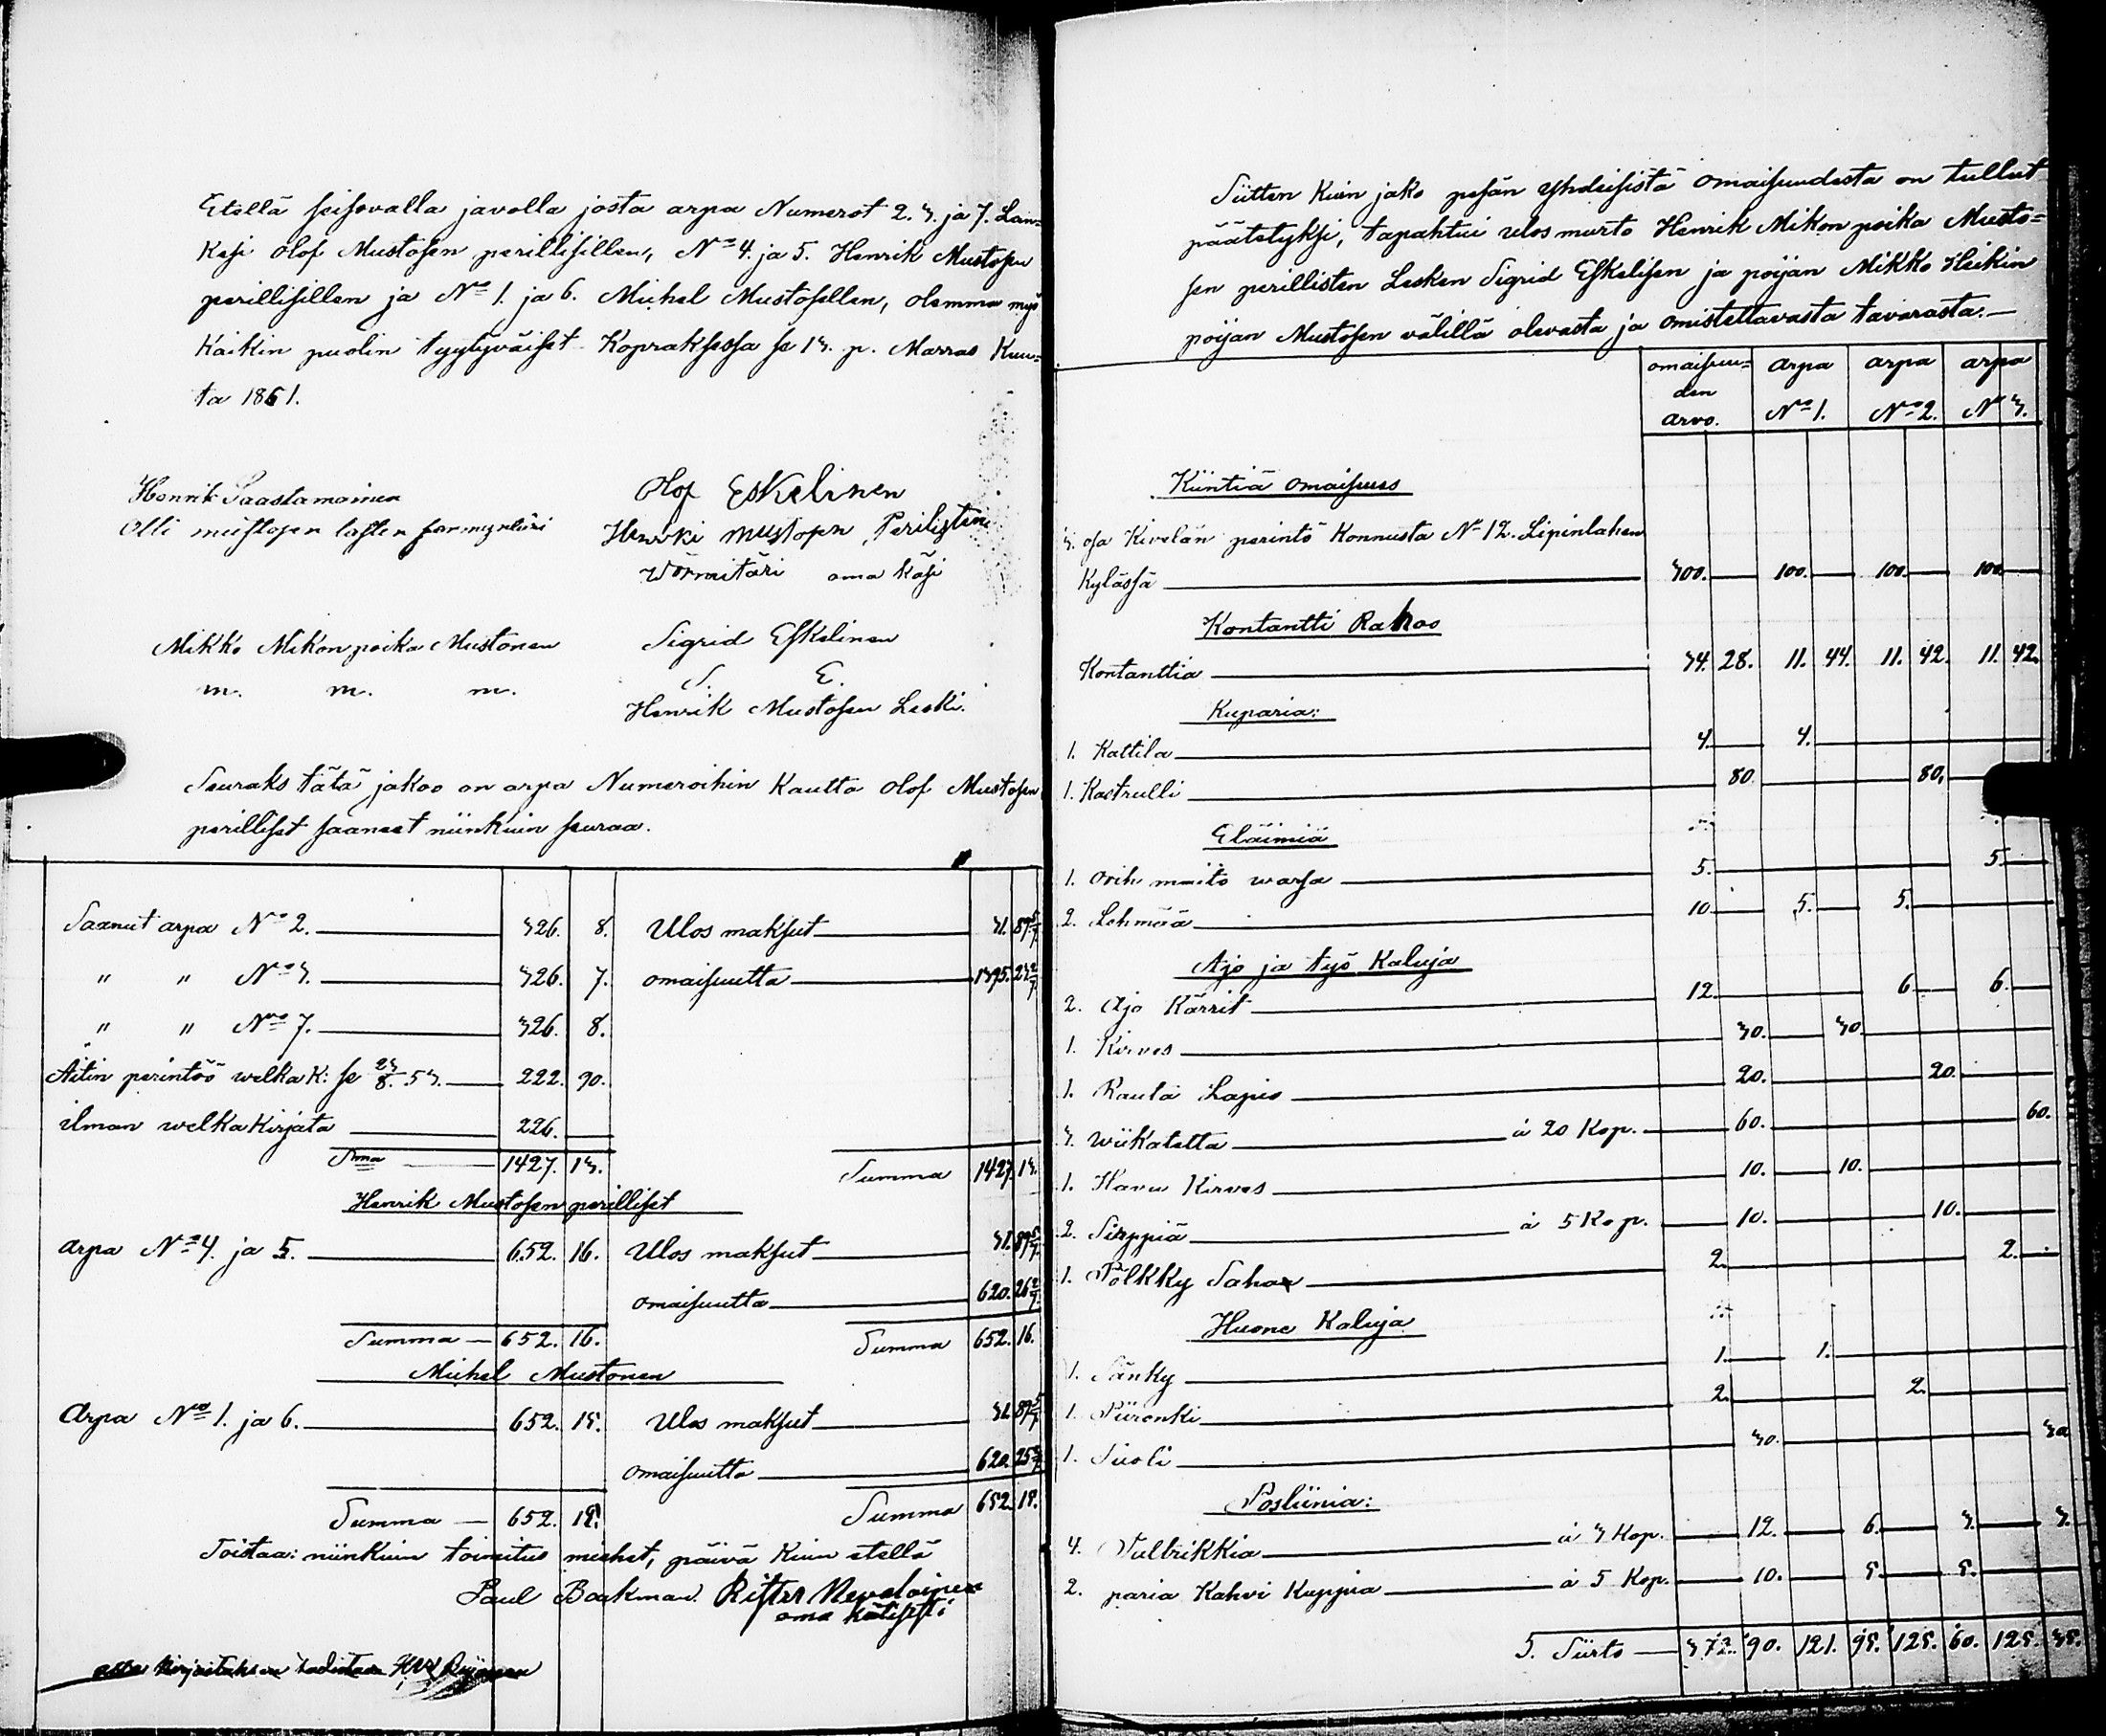 Etellä seisovalla javolla josta arpa Numerot 2. 3. ja 7. Lan=
kesi Olof Mustosen perillisillen, No 4. ja 5. Henrik Mustosen
perillisillen ja No 1. ja 6. Michel Mustosellen, olemma myö
Kaikin puolin tyytyväiset Koprakssssa se 13. p. Marras Kuu=
ta 1861.
Henrik Saastamoinen
Olli mustosen lasten formyntäri
Olof Eskelinen
Henrki Mustosen Perilisten
Wörmitäri oma käsi
Mikko Mikonpoika Mustonen
m. m. m.
Sigrid Eskelinen
S. E.
Henrik Mustosen Leski.
Seuraks tätä jakoo on arpa Numeroihin Kautta Olof Mustosen
perilliset saaneet niinkuin seuraa.
Saanut arpa No 2. 326. 8. Ulos maksut 31. 89 5/7
" " No 3. 326. 7. omaisuutta 1395. 23 2/7
" " No 7. 326. 8.
Äitin perintöö welka K: se 23/8. 53. 222. 90.
ilman welka Kirjata 226.
Sma 1427. 13. Summa 1427. 13.
Henrik Mustosen perilliset
arpa No 4. ja 5. 652. 16. Ulos maksut 31. 89 5/7
omaisuutta 620. 26 2/7
Summa 652. 16. Summa 652. 16.
Michel Mustonen
Arpa No 1. ja 6. 652. 15. Ulos maksut 31. 89 5/7
omaisuutta 620. 25 2/7
Summa 652. 15. Summa 652. 15.
Toistaa: niinkuin toimitus miehet, päivä Kuin etellä
Paul Backman. Rister Nevalainen
oma kätisesti
todistaa
Siitten Kuin jako pesän yhdeisistä omaisuudesta on tullut
päätetyksi, tapahtui ulos murto Henrik Mikon poika Musto=
sen perillisten Lesken Sigrid Eskelisen ja poijan Mikko Heikin
poijan Mustosen välillä olevasta ja omistettavasta tavarasta.
omaisuu= arpa arpa arpa
den
arvo. No 1. No 2. No 3.
Kiintiä omaisuus
3. osa Kivelän perintö Konnusta No 12. Lipinlahen
Kylässä 300. 100. 100. 100
Kontantti Rahoo
Kontanttia 34. 28. 11. 44. 11. 42. 11. 42.
Kuparia:
1. Kattila 4. 4.
1. Kastrulli 80. 80.
Eläimiä
1. Orih maito warsa 5. 5.
2. Lehmää 10. 5. 5.
Ajo ja työ Kaluja
2. Ajo Kärrit 12. 6. 6.
1. Kirves 30. 30.
1. Rauta Lapio 20. 20.
3. Wiikatetta à 20 Kop. 60. 60.
1. Havu Kirves 10. 10.
2. Sirppiä à 5 Kop. 10. 10.
1. Pölkky Sahaa 2. 2.
Huone Kaluja
1. Sänky 1. 1.
1. Piironki 2. 2.
1. Tuoli 30. 30
Posliinia:
4. Tulbrikkia à 3 Kop. 12. 6. 3. 3.
2. paria Kahvi Kuppia à 5 Kop. 10. 5. 5.
5. Siirto 372. 90. 121. 95. 125. 60. 125. 35.